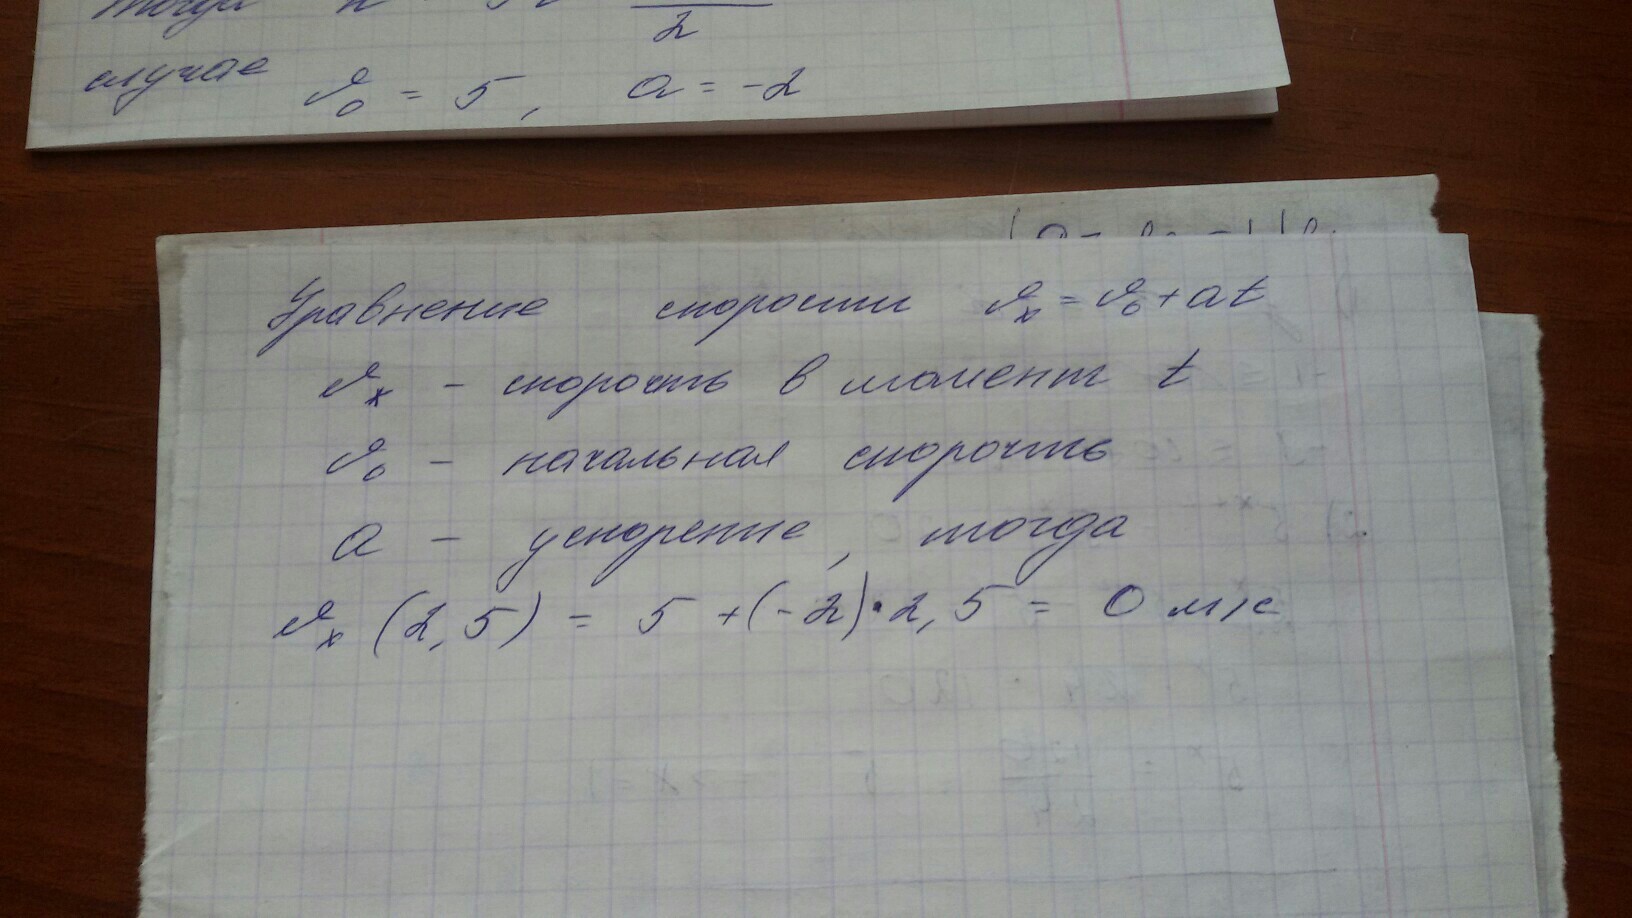 тогда
2
случае v₀ = 5, a = -2
Уравнение скорости vₓ = v₀ + at
vₓ - скорость в момент t
v₀ - начальная скорость
a - ускорение, тогда
vₓ (2,5) = 5 + (-2) · 2,5 = 0 м/с